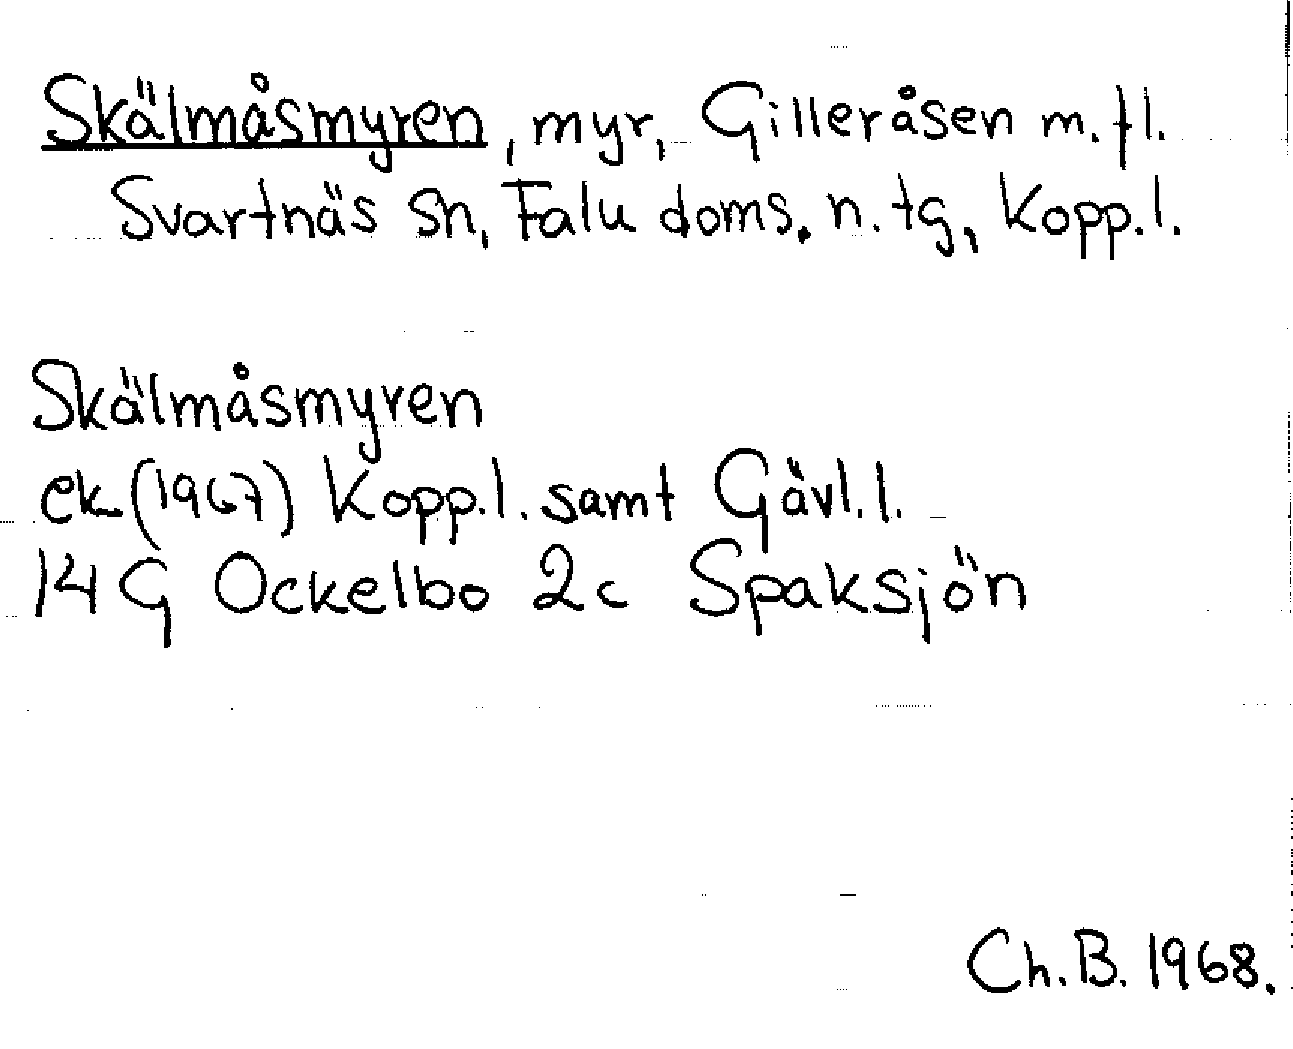 Skälmåsmyren, myr, Gilleråsen m.fl.
Svartnäs sn, Falu doms. n. tg, Kopp.l.
Skälmåsmyren
ek (1967) Kopp.l. samt Gävl.l.
14 G Ockelbo 2c Spaksjön
Ch.B. 1968.